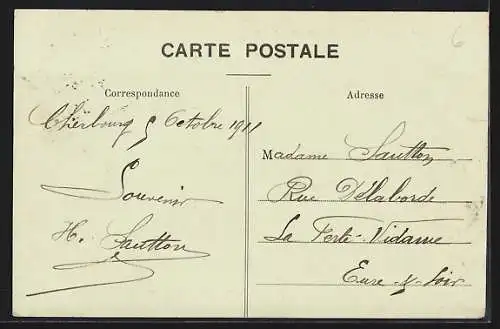 6
CARTE POSTALE
Correspondance
Adresse
Cherbourg 5 Octobre 1911
Souvenir
H. Sautton
Madame Sautton
Rue Délaborde
La Ferté-Vidame
Eure-&-Loir